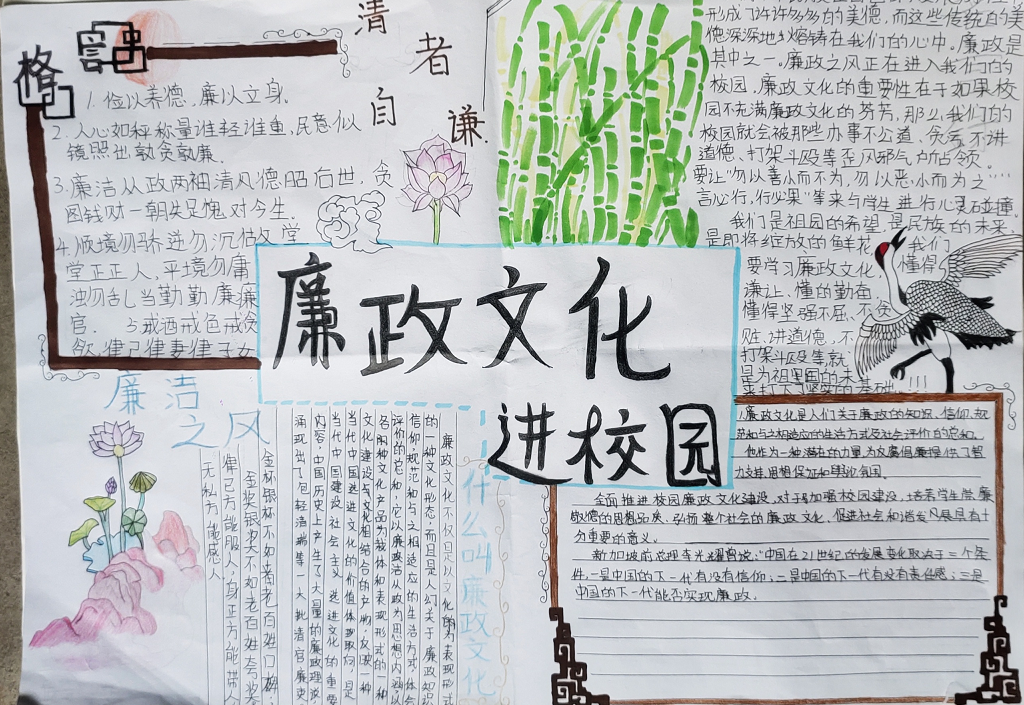 格言
1. 俭以养德，廉以立身。
2. 人心如秤称量谁轻谁重，民意似
镜照出孰贪孰廉。
3. 廉洁从政两袖清风德昭后世，贪
图钱财一朝失足愧对今生。
4. 顺境勿骄逆勿沉沽名堂
堂正正人，平境勿庸
浊勿乱当勤勤廉廉
官.
5戒酒戒色戒贪
欲律己律妻律子女
清者自谦
形成了许许多多的美德，而这些传统的美
德深深地熔铸在我们的心中。廉政是
其中之一。廉政之风正在进入我们的
校园，廉政文化的重要性在于如果校
园不充满廉政文化的芬芳，那么，我们的
校园就会被那些办事不公道、贪吝不讲
道德、打架斗殴等歪风邪气所占领。
要让"勿以善小而不为，勿以恶小而为之"
言必行，行必果"等来与学生进行心灵碰撞。
我们是祖国的希望，是民族的未来，
是即将绽放的鲜花，我们
要学习廉政文化，懂得
谦让、懂的勤奋，
懂得坚强不屈、不贪
赃、讲道德，不
打架斗殴等，就
是为祖国的未
来打下坚实的基础！！！
廉政文化
进校园
廉洁
之风
金杯银杯不如老百姓口碑，
金奖银奖不如老百姓夸奖
律己方能服人，身正方能带人
无私方能感人
什么叫廉政文化
廉政文化不仅是以文化的为表现形式
的一种文化形态，而且是人们关于廉政知识
信仰、规范和与之相适应的生活方式、社会
评价的总和，它以廉政洁从政为思想内涵以
各种文化产品为载体和表现形式的一种
文化建设与文化相结合的产物，反映一种
当代中国先进文化的价值体现取向，是
当代中国建设社会主义先进文化的重要
内容。中国历史上产生了大量的廉政理论，
涌现出了包拯海瑞等一大批清官廉吏
廉政文化是人们关于廉政的知识、信仰、规
范和与之相适应的生活方式及社会评价的总和。
他作为一种潜在的力量，为反腐倡廉提供了智
力支持、思想保证和舆论氛围。
全面推进校园廉政文化建设，对于加强校园建设，培养学生崇廉
敬德的思想品质、弘扬整个社会的廉政文化、促进社会和谐发展具有十
分重要的意义。
新加坡前总理李光耀曾说："中国在21世纪的发展变化取决于三个条
件，一是中国的下一代有没有信仰；二是中国的下一代有没有责任感；三是
中国的下一代能否实现廉政。